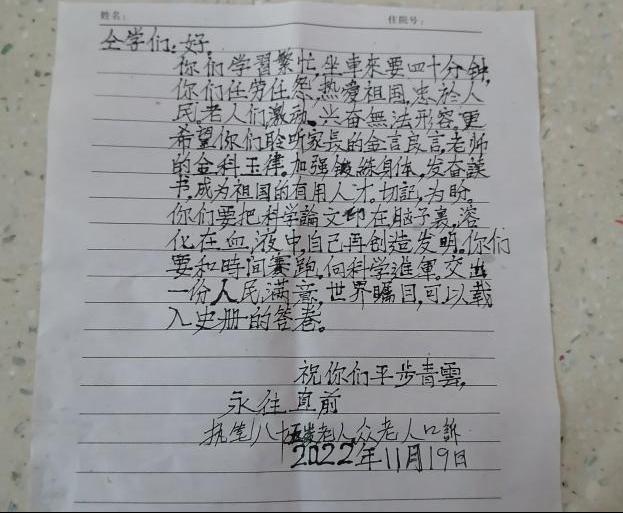 姓名： 住院号：
仝学们：好。
你们学習繁忙，坐車來要四十分钟，
你们任劳任怨、热爱祖国，忠於人
民，老人们激动、兴奋無法形容，更
希望你们聆听家長的金言良言，老师
的金科玉律。加强锻練身体，发奋讀
书，成为祖国的有用人才。切記，为盼。
你们要把科学論文印在脑子裏，溶
化在血液中，自己再创造发明。你们
要和時间賽跑，向科学進軍。交出
一份人民满意，世界矚目，可以载
入史册的答卷。
祝你们平步青雲，
永往直前
执笔八十五歲老人，众老人口訴
2022年11月19日